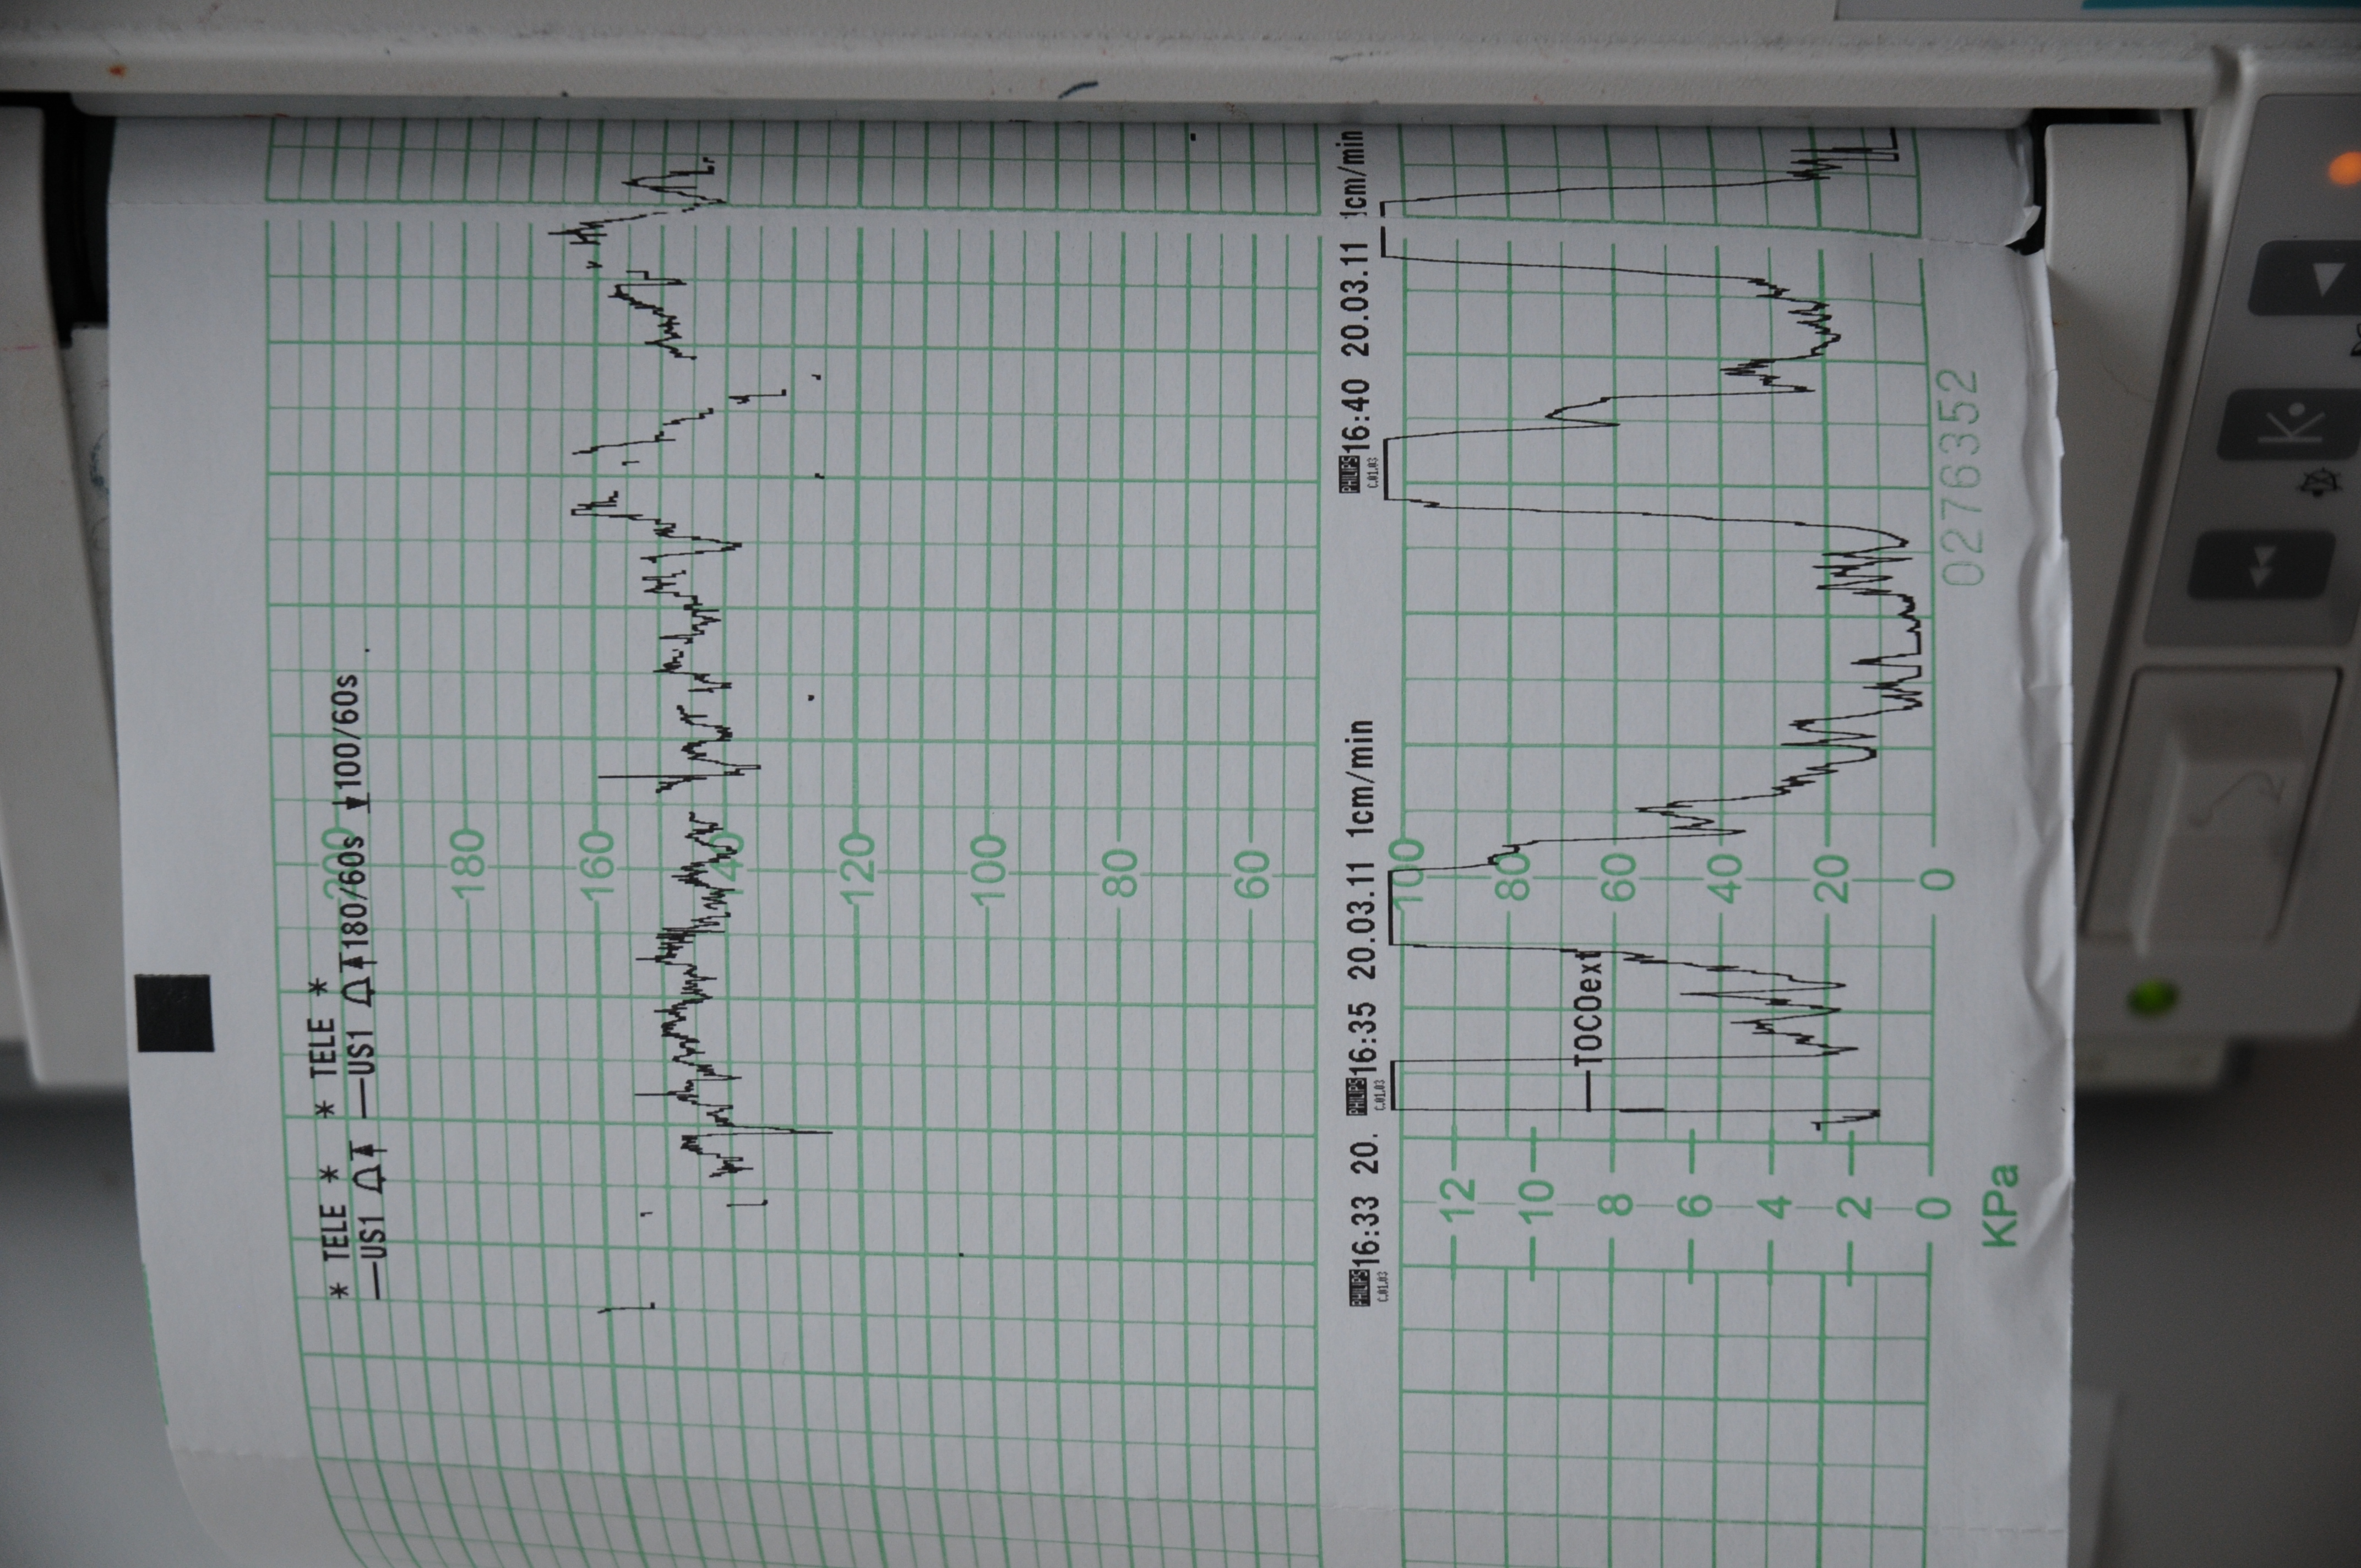 * TELE *
* TELE *
—US1 180/60s 100/60s
—US1
200
180
160
140
120
100
80
60
PHILIPS 16:33 20.
C.01.03
PHILIPS 16:35 20.03.11 1cm/min
C.01.03
PHILIPS 16:40 20.03.11 1cm/min
C.01.03
—TOCOext
100
80
60
40
20
0
12
10
8
6
4
2
0
KPa
0276352